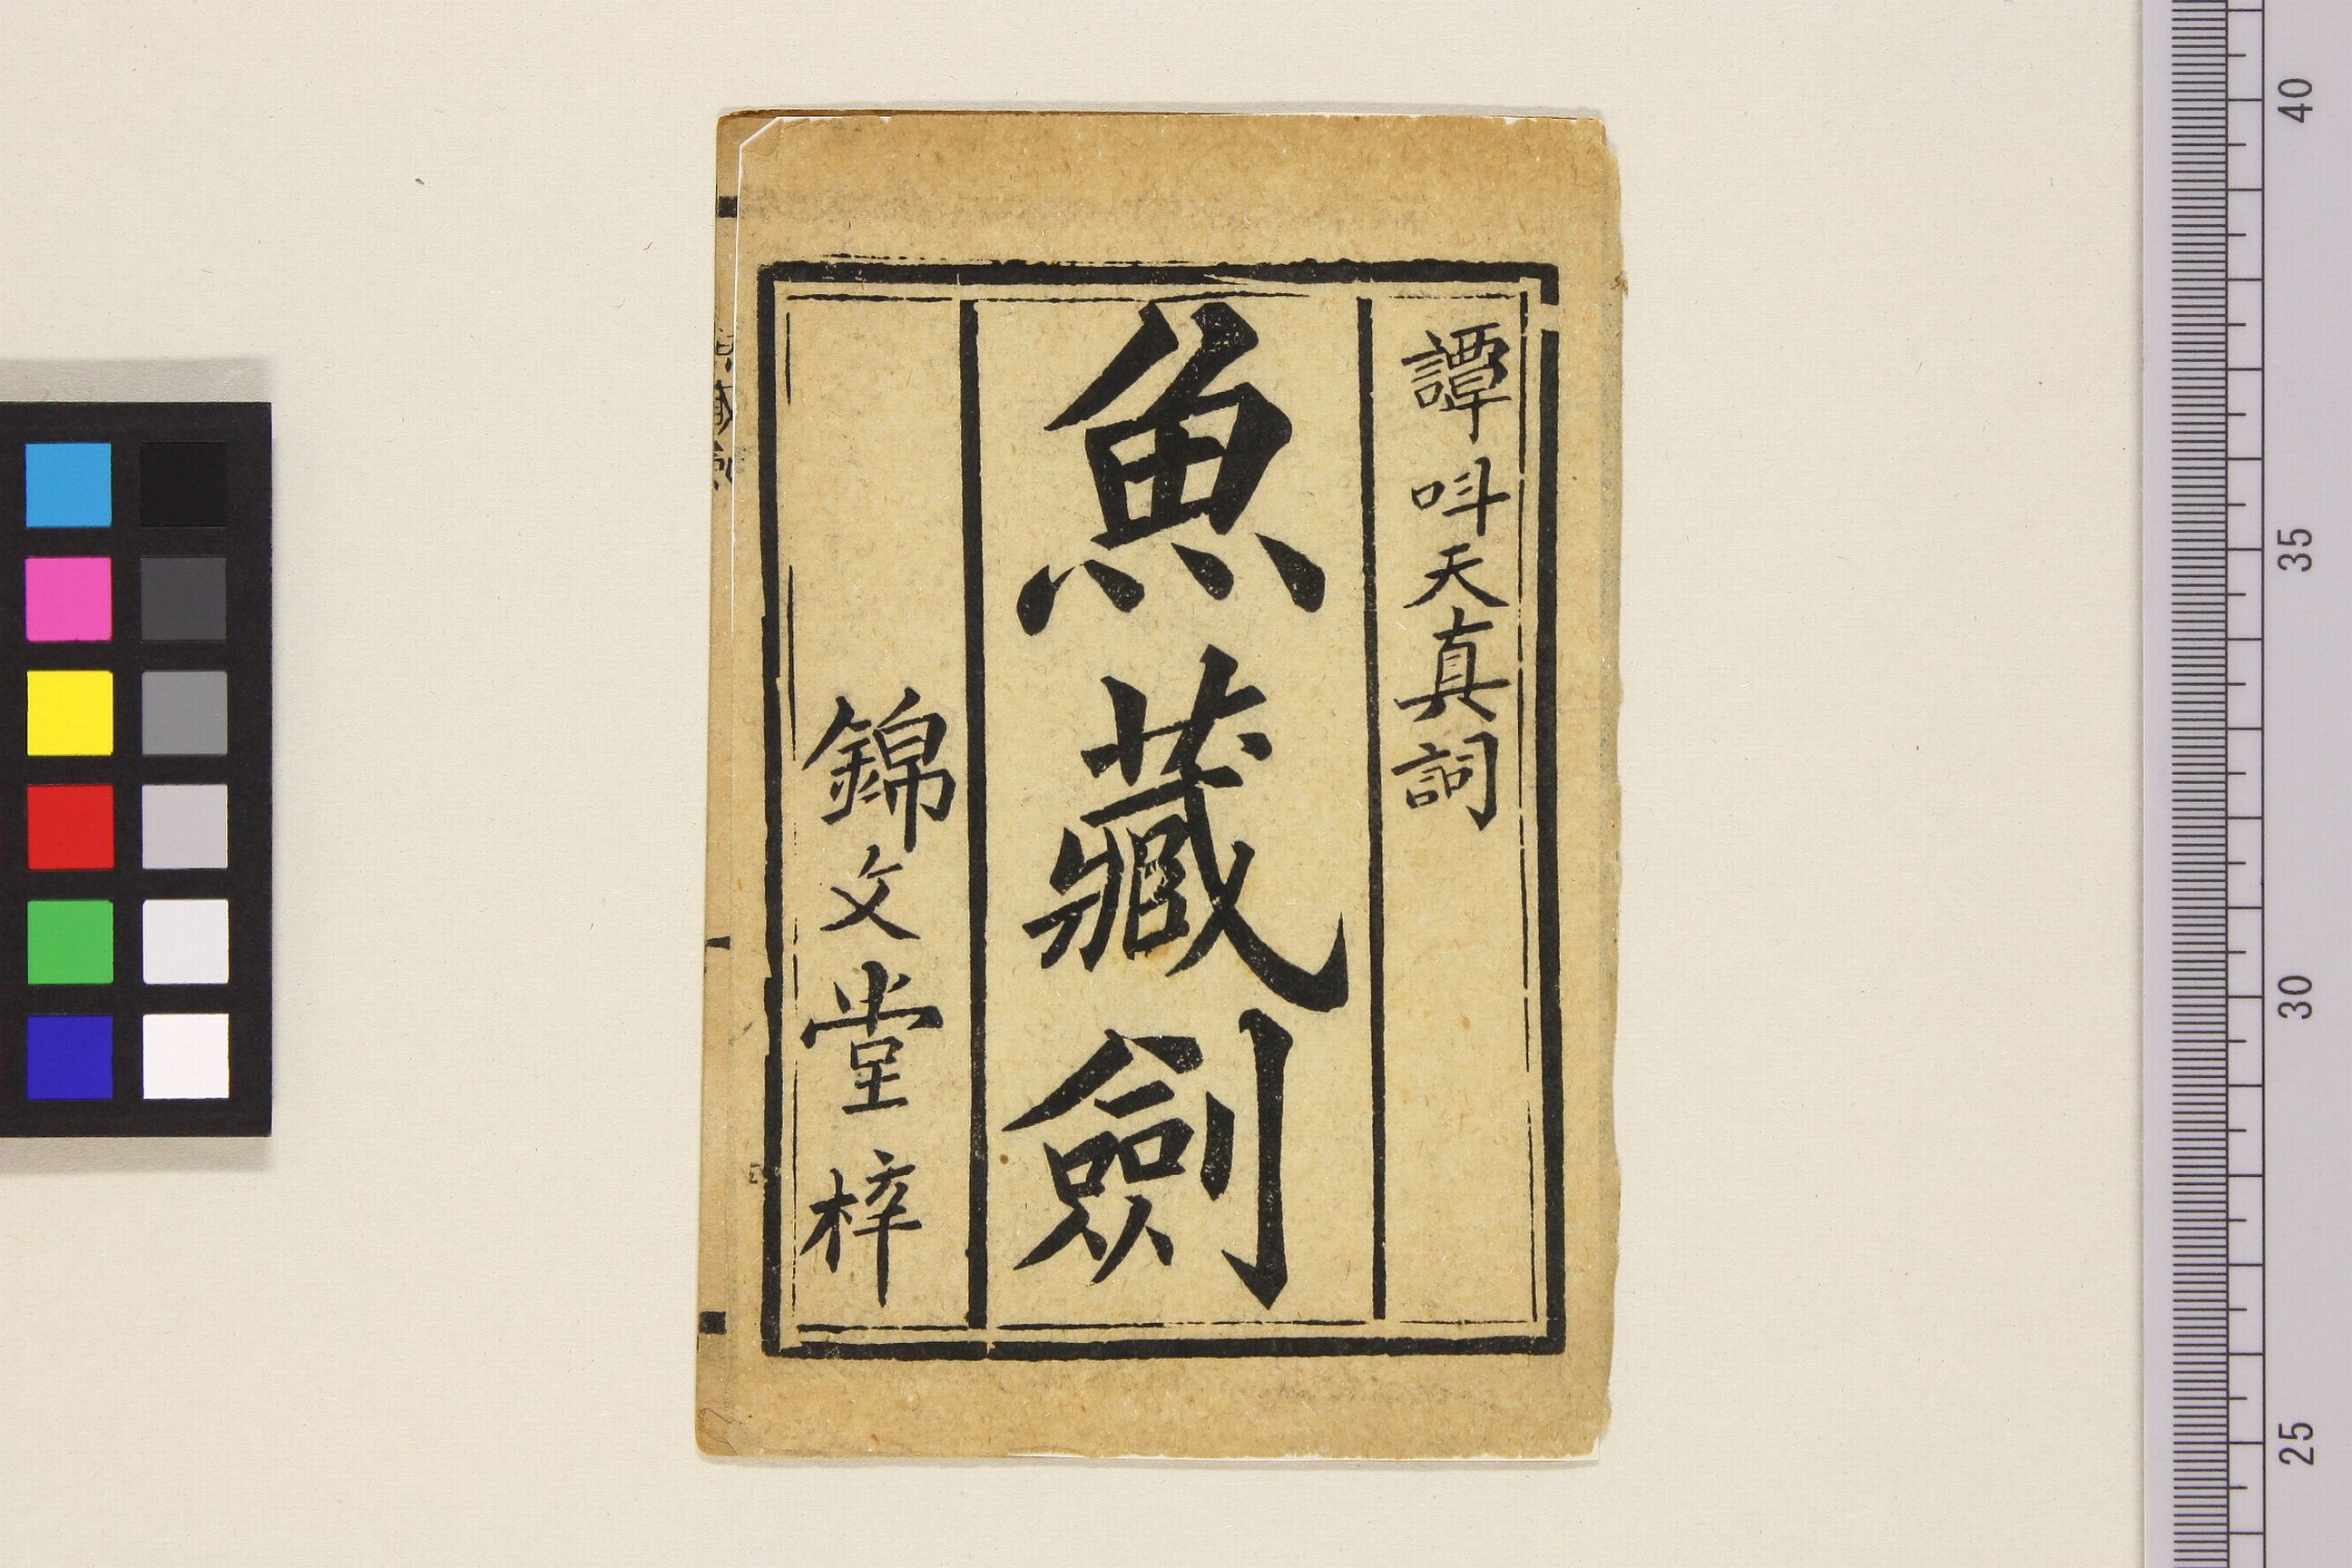 譚呌天真詞
魚藏劍
錦文堂梓
40
35
30
25